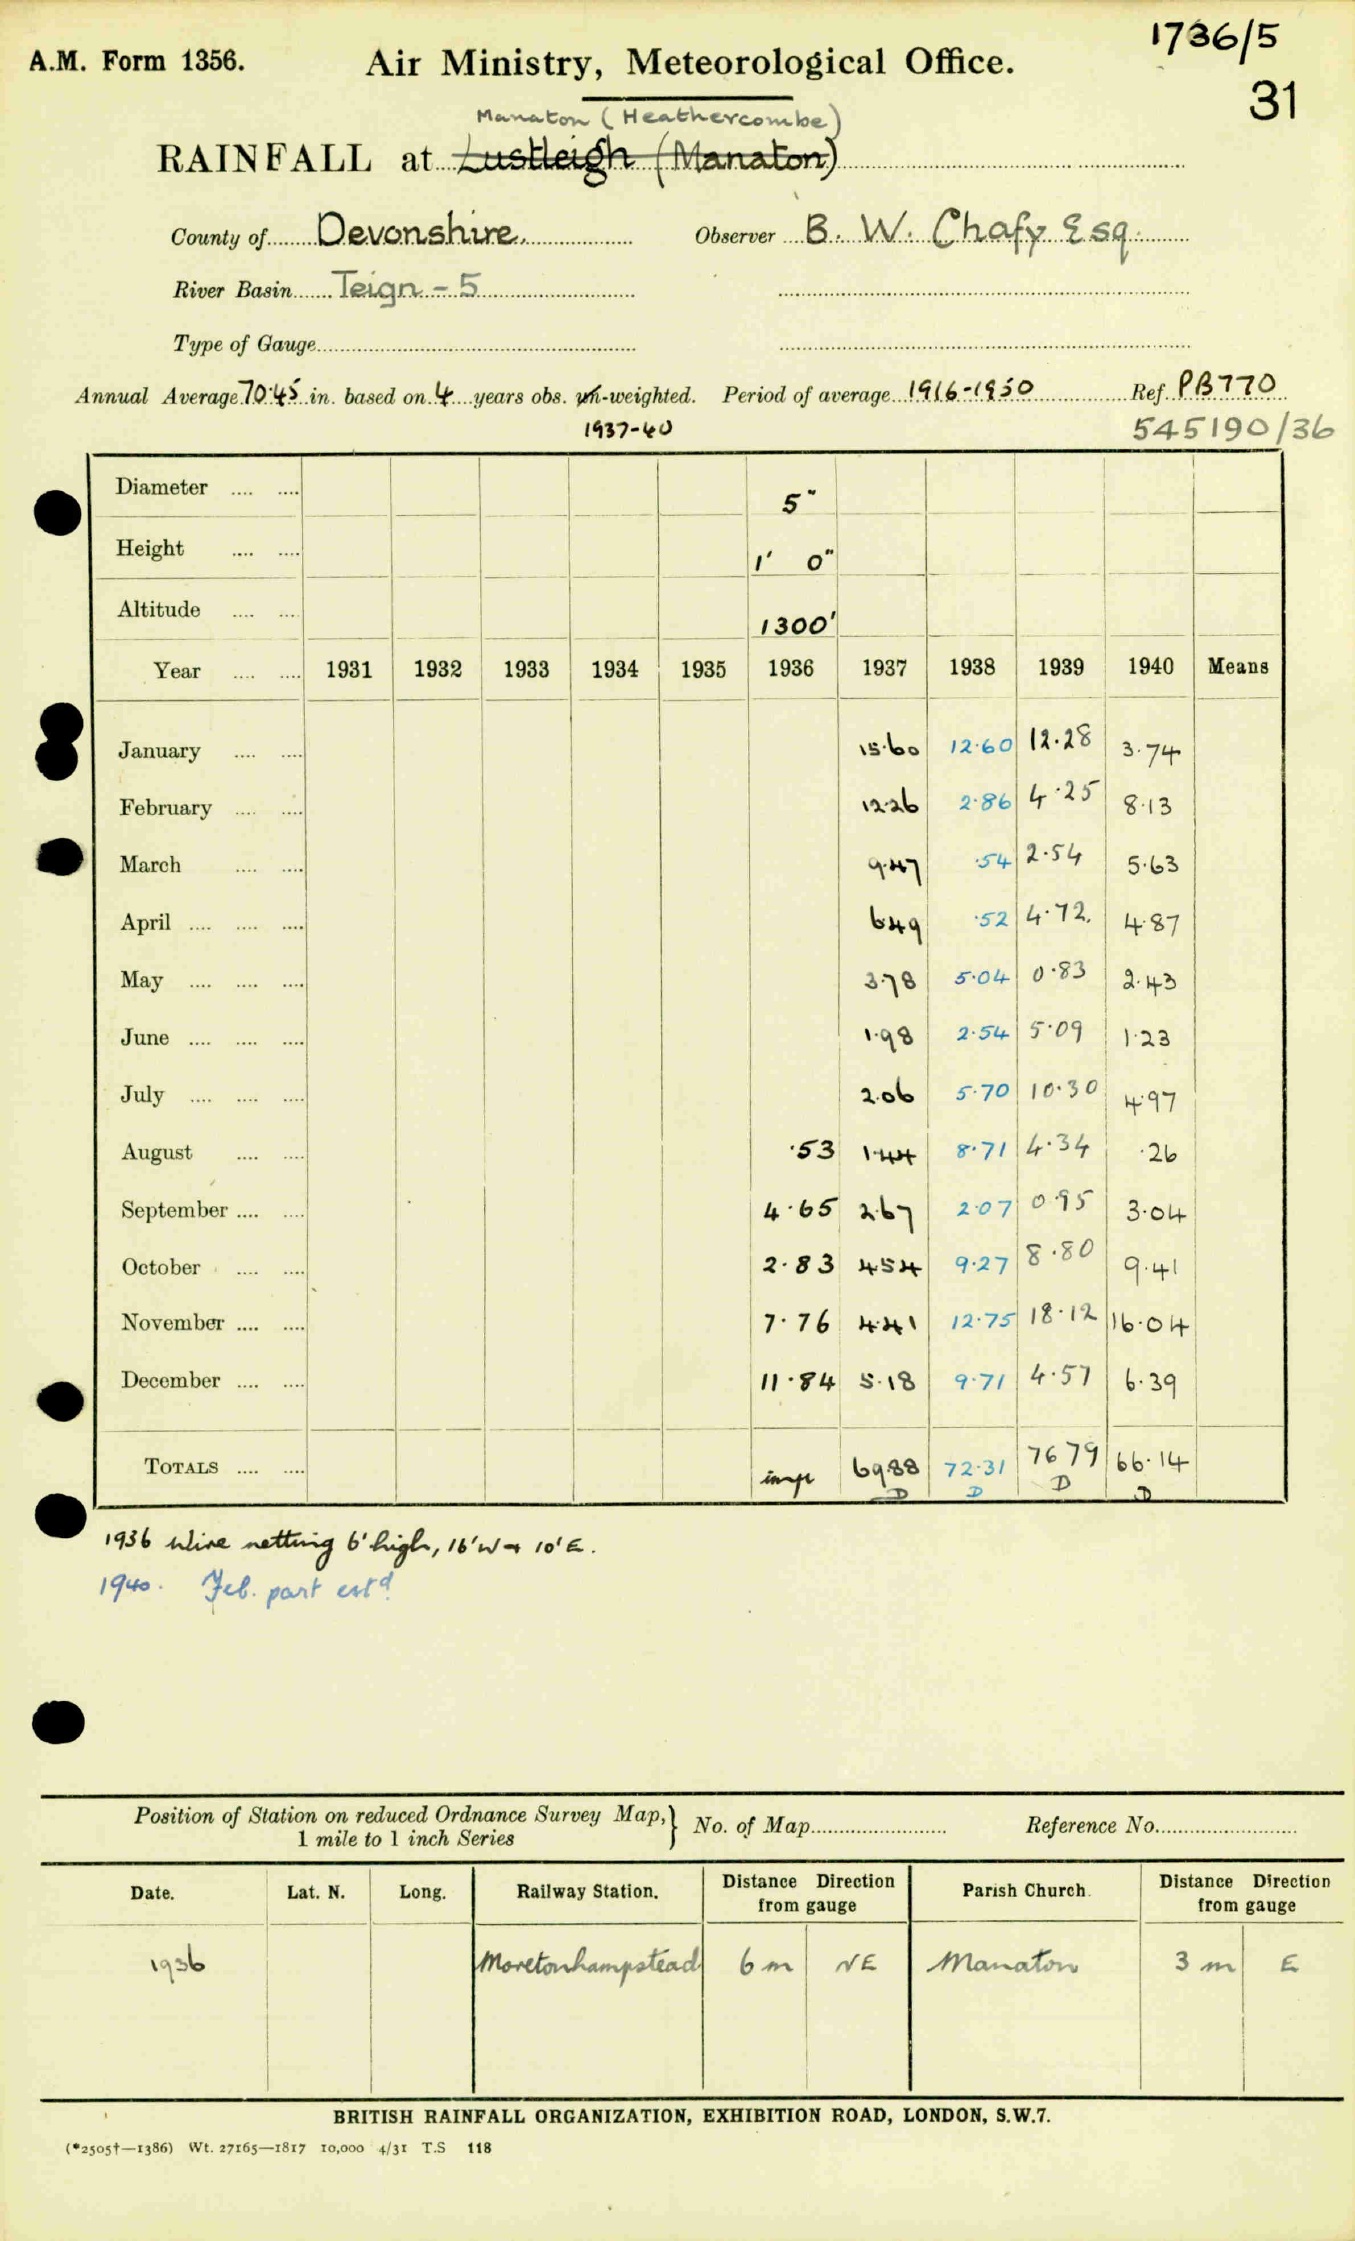 1736/5
A.M. Form 1356. Air Ministry, Meteorological Office.
31
Manaton (Heathercombe)
RAINFALL at Lustleigh (Manaton)
County of Devonshire. Observer B. W. Chafy Esq.
River Basin Teign - 5
Type of Gauge
Annual Average 70.45 in. based on 4 years obs. un-weighted. Period of average 1916-1950 Ref. PB770
1937-40 545190/36
Diameter .... .... 5"
Height .... .... 1' 0"
Altitude .... .... 1300'
Year .... .... 1931 1932 1933 1934 1935 1936 1937 1938 1939 1940 Means
January .... .... 15.60 12.60 12.28 3.74
February .... .... 12.26 2.86 4.25 8.13
March .... .... 9.47 .54 2.54 5.63
April .... .... .... 6.49 .52 4.72 4.87
May .... .... .... 3.78 5.04 0.83 2.43
June .... .... .... 1.98 2.54 5.09 1.23
July .... .... .... 2.06 5.70 10.30 4.97
August .... .... .53 1.44 8.71 4.34 .26
September .... .... 4.65 2.67 2.07 0.95 3.04
October .... .... 2.83 4.54 9.27 8.80 9.41
November .... .... 7.76 4.41 12.75 18.12 16.04
December .... .... 11.84 5.18 9.71 4.57 6.39
TOTALS .... .... imp 69.88 72.31 76.79 66.14
D D D D
1936 Wire netting 6' high, 16' W + 10' E.
1940. Feb. part estd.
Position of Station on reduced Ordnance Survey Map, } No. of Map Reference No.
1 mile to 1 inch Series
Date. Lat. N. Long. Railway Station. Distance Direction from gauge Parish Church. Distance Direction from gauge
1936 Moretonhampstead 6 m NE Manaton 3 m E
BRITISH RAINFALL ORGANIZATION, EXHIBITION ROAD, LONDON, S.W.7.
(*2505†—1386) Wt. 27165—1817 10,000 4/31 T.S 118